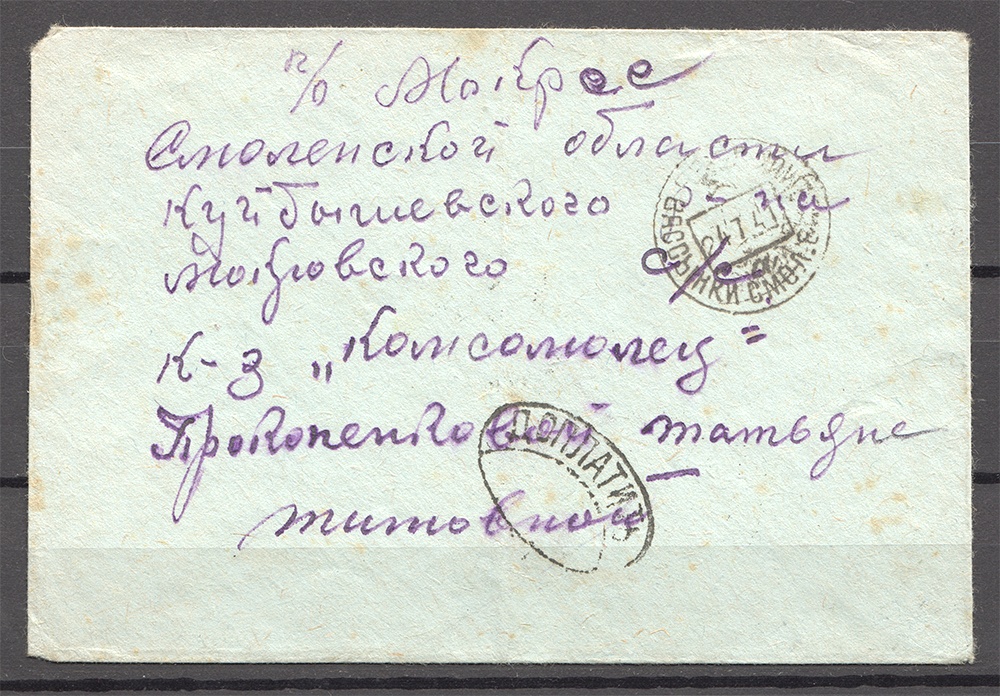 п/о Мокрое
Смоленской области
Куйбышевского р-на
Мокровского с/с
К-з „Комсомолец"
Прокопенковой Татьяне
Титовной
ВЫСОКИНИЧИ СМОЛ.
ДОПЛАТИТЬ